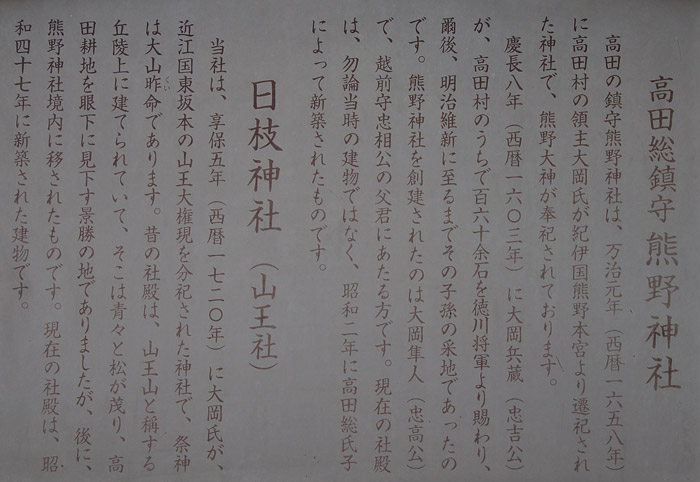 高田総鎮守 熊野神社
高田の鎮守熊野神社は、万治元年（西暦一六五八年）
に高田村の領主大岡氏が紀伊国熊野本宮より遷祀され
た神社で、熊野大神が奉祀されております。
慶長八年（西暦一六〇三年）に大岡兵蔵（忠吉公）
が、高田村のうちで百六十余石を徳川将軍より賜わり、
爾後、明治維新に至るまでその子孫の采地であったの
です。熊野神社を創建されたのは大岡隼人（忠高公）
で、越前守忠相公の父君にあたる方です。現在の社殿
は、勿論当時の建物ではなく、昭和二年に高田総氏子
によって新築されたものです。
日枝神社（山王社）
当社は、享保五年（西暦一七二〇年）に大岡氏が、
近江国東坂本の山王大権現を分祀された神社で、祭神
は大山昨命であります。昔の社殿は、山王山と稱する
丘陵上に建てられていて、そこは青々と松が茂り、高
田耕地を眼下に見下す景勝の地でありましたが、後に、
熊野神社境内に移されたものです。現在の社殿は、昭
和四十七年に新築された建物です。